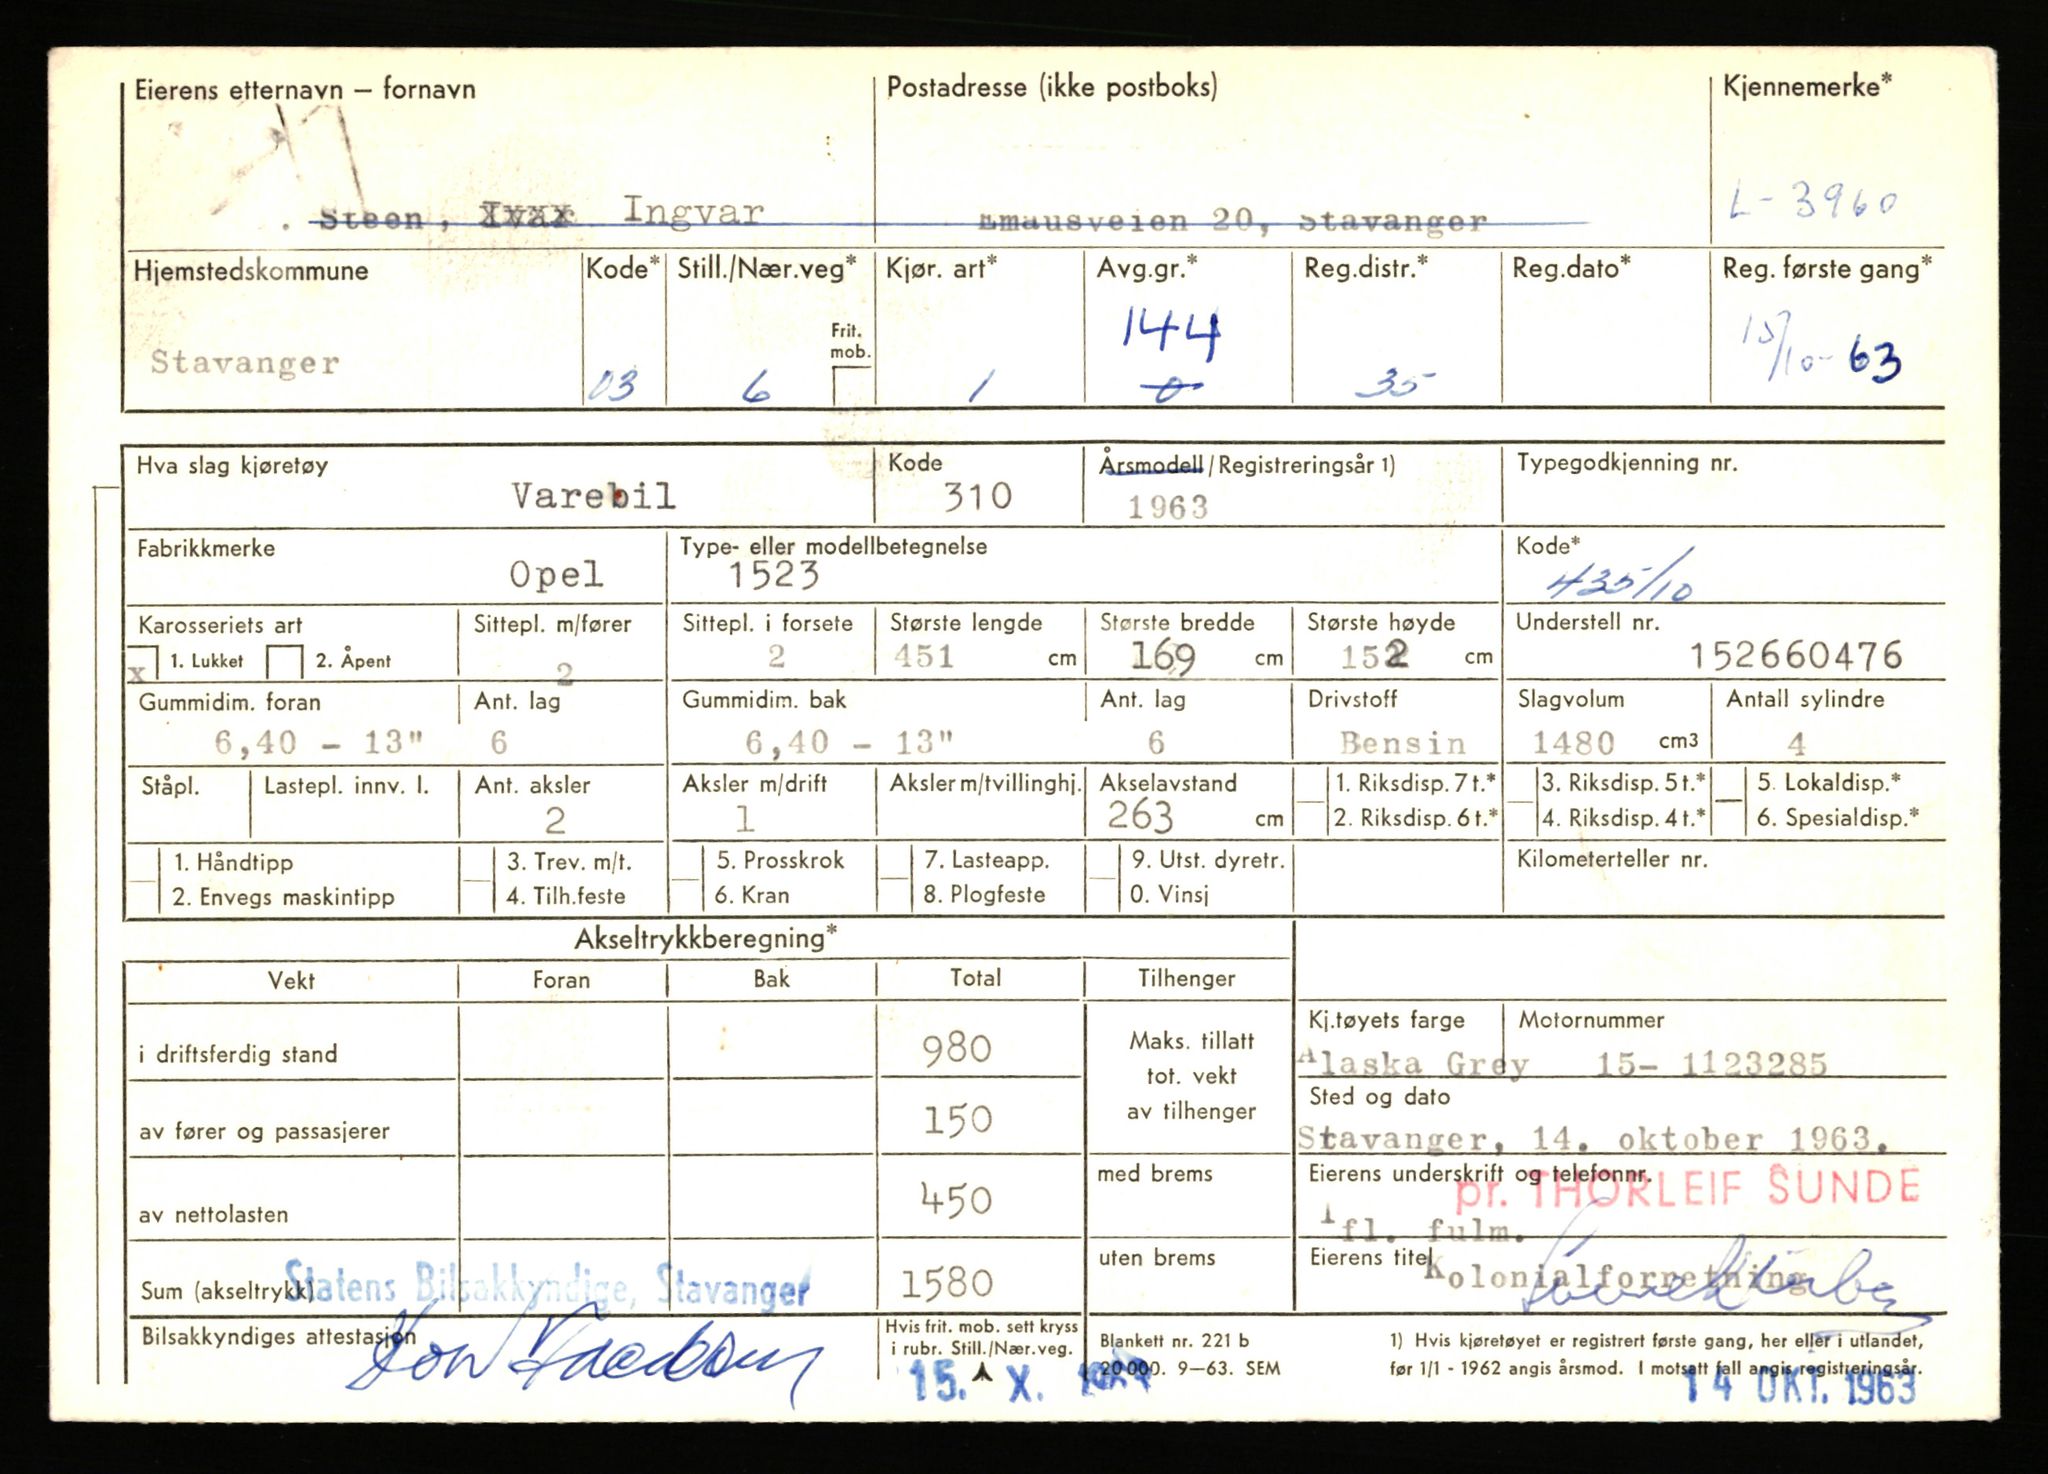 Eierens etternavn – fornavn Postadresse (ikke postboks) Kjennemerke*
Steen, Ivar Ingvar Emausveien 20, Stavanger L-3960
Hjemstedskommune Kode* Still./Nær.veg* Kjør. art* Avg.gr.* Reg.distr.* Reg.dato* Reg. første gang*
Frit. mob.
144
Stavanger 03 6 1 0 35 15/10-63
Hva slag kjøretøy Kode Årsmodell/Registreringsår 1) Typegodkjenning nr.
Varebil 310 1963
Fabrikkmerke Type- eller modellbetegnelse Kode*
Opel 1523 435/10
Karosseriets art Sittepl. m/fører Sittepl. i forsete Største lengde Største bredde Største høyde Understell nr.
x 1. Lukket 2. Åpent 2 2 451 cm 169 cm 152 cm 152660476
Gummidim. foran Ant. lag Gummidim. bak Ant. lag Drivstoff Slagvolum Antall sylindre
6,40 - 13" 6 6,40 - 13" 6 Bensin 1480 cm3 4
Ståpl. Lastepl. innv. l. Ant. aksler Aksler m/drift Aksler m/tvillinghj. Akselavstand 1. Riksdisp. 7 t.* 3. Riksdisp. 5 t.* 5. Lokaldisp.*
2 1 263 cm 2. Riksdisp. 6 t.* 4. Riksdisp. 4 t.* 6. Spesialdisp.*
1. Håndtipp 3. Trev. m/t. 5. Prosskrok 7. Lasteapp. 9. Utst. dyretr. Kilometerteller nr.
2. Envegs maskintipp 4. Tilh.feste 6. Kran 8. Plogfeste 0. Vinsj
Akseltrykkberegning*
Vekt Foran Bak Total Tilhenger
i driftsferdig stand 980 Maks. tillatt tot. vekt av tilhenger
Kj.tøyets farge Motornummer
Alaska Grey 15- 1123285
av fører og passasjerer 150
Sted og dato
Stavanger, 14. oktober 1963.
av nettolasten 450 med brems
Eierens underskrift og telefonnr.
pr. THORLEIF SUNDE
ifl. fulm.
Sum (akseltrykk) 1580 uten brems
Statens Bilsakkyndige, Stavanger
Eierens titel
Kolonialforretning
Bilsakkyndiges attestasjon
Hvis frit. mob. sett kryss
i rubr. Still./Nær.veg.
Blankett nr. 221 b
20000. 9–63. SEM
1) Hvis kjøretøyet er registrert første gang, her eller i utlandet,
før 1/1 - 1962 angis årsmod. I motsatt fall angis registreringsår.
15. X.
14 OKT. 1963